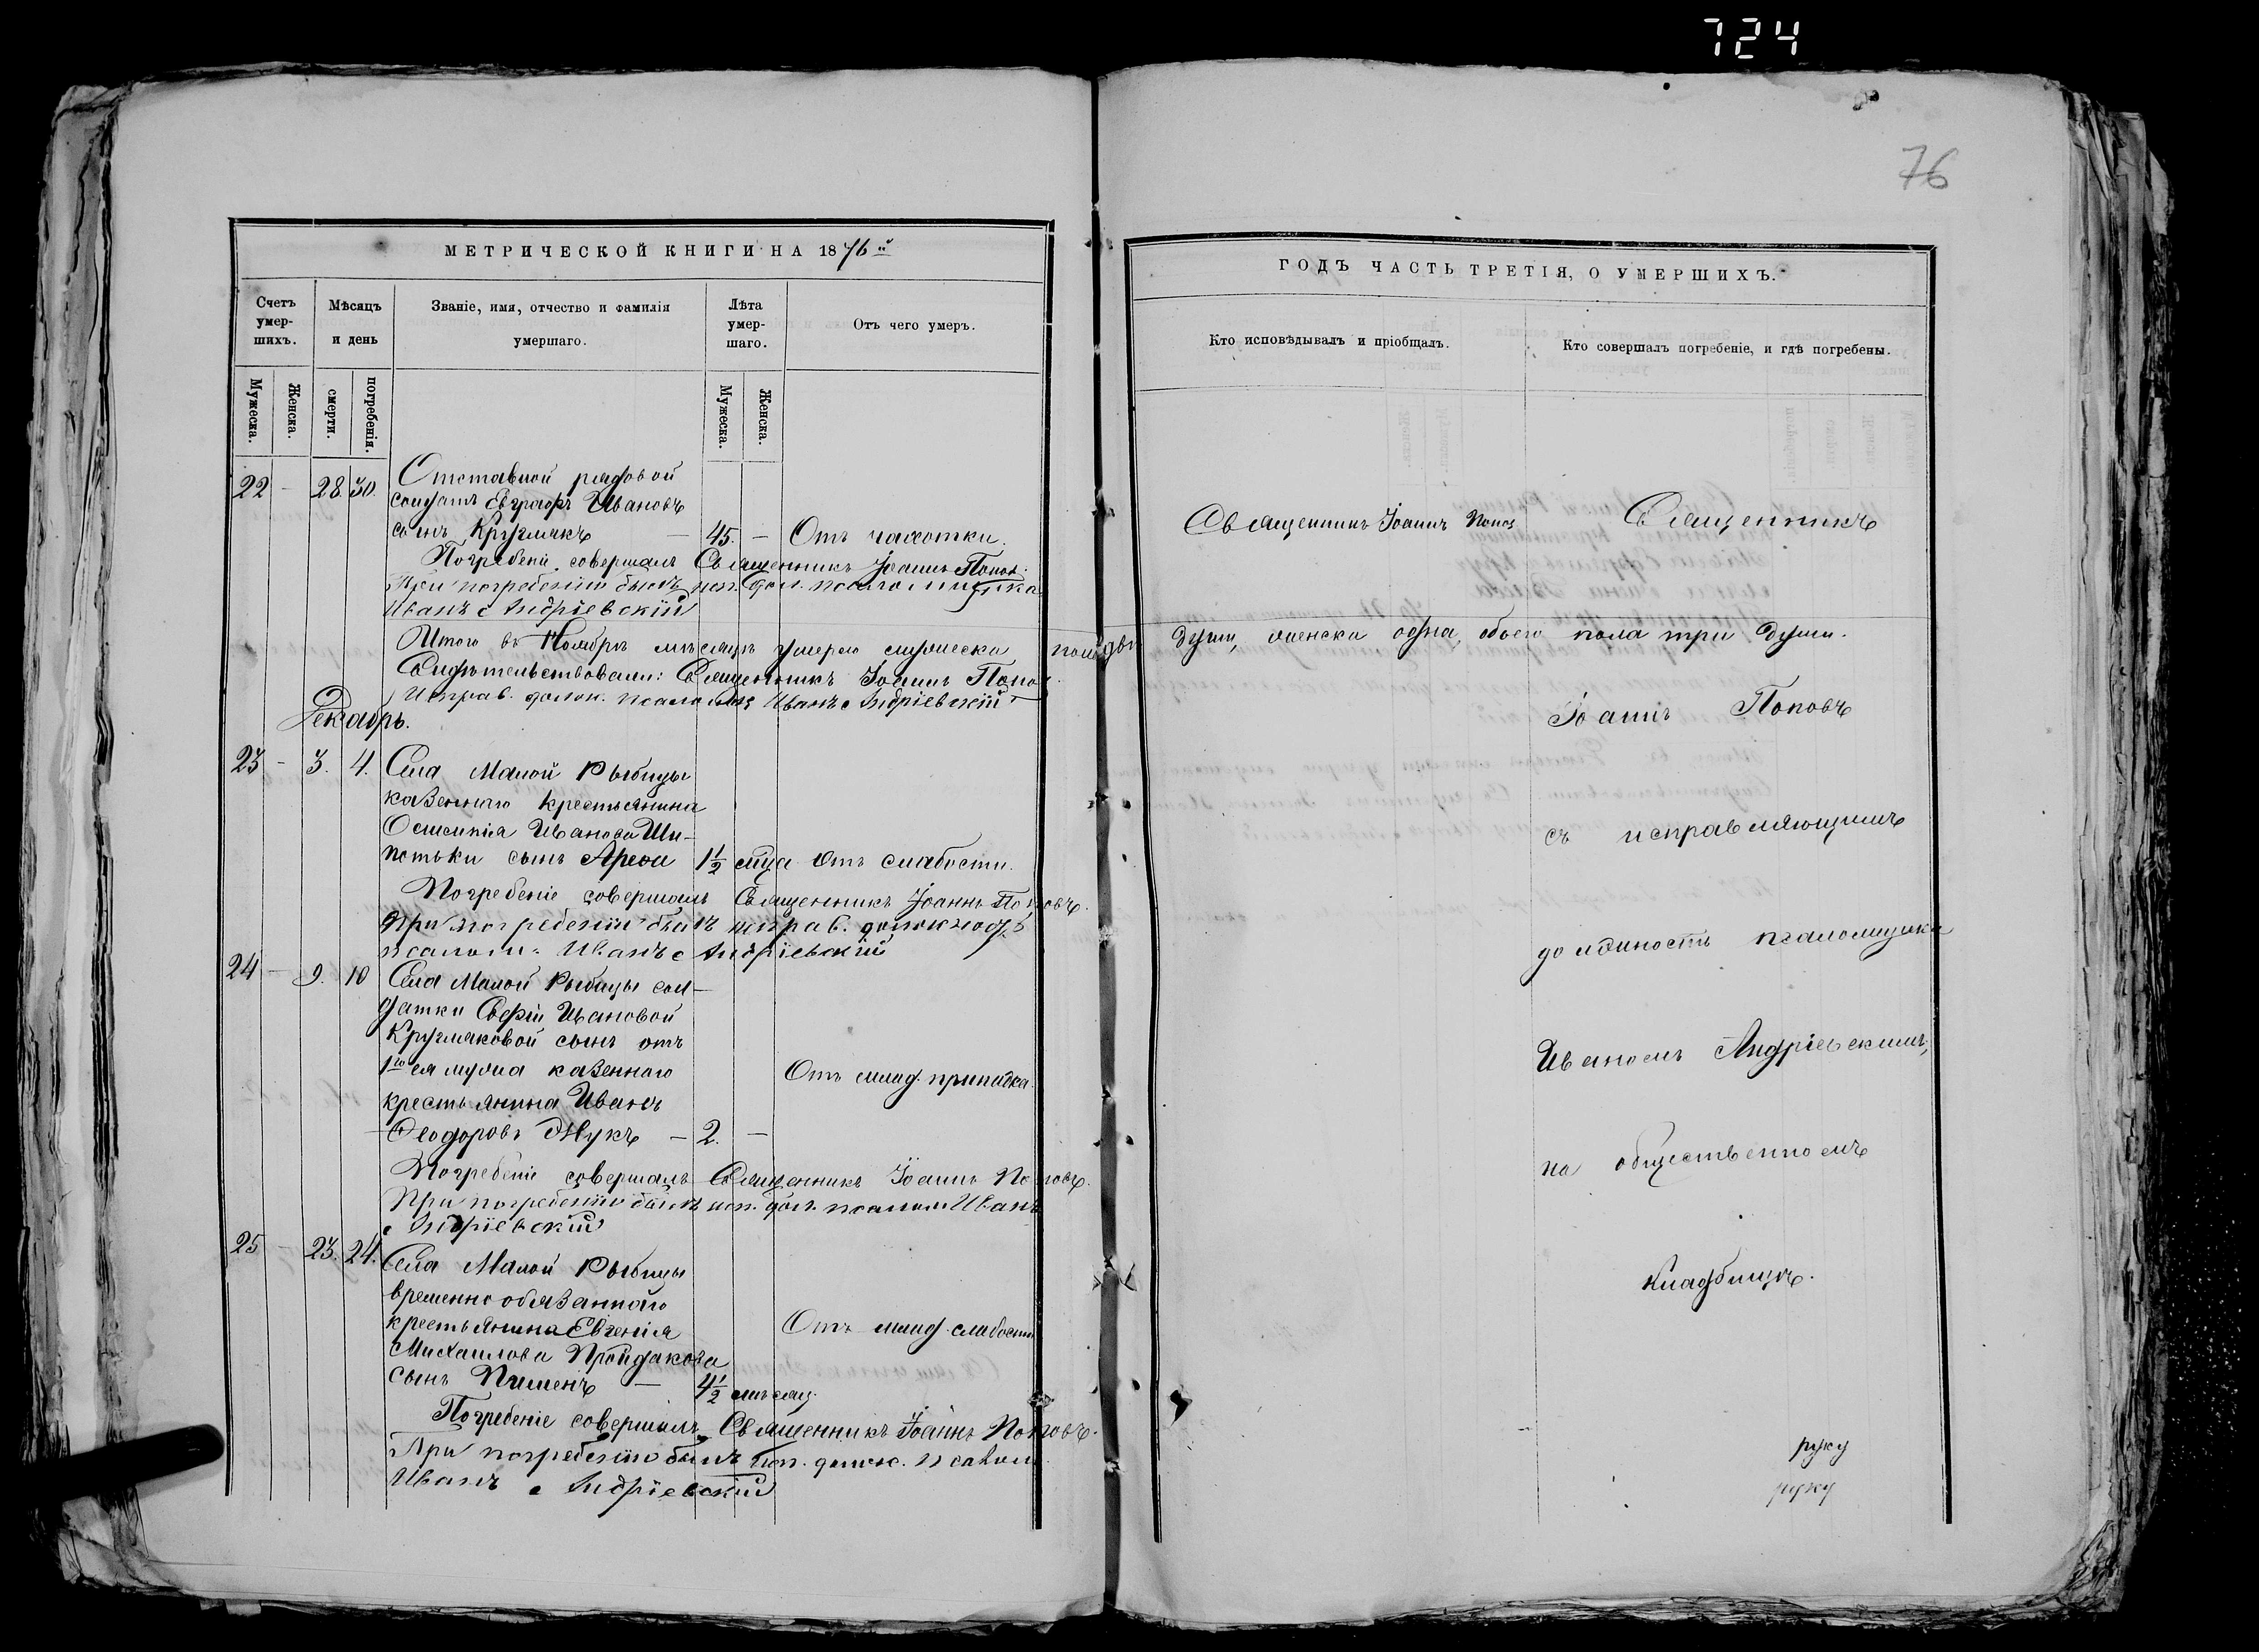 724
76
МЕТРИЧЕСКОЙ КНИГИ НА 1876й
Счетъ умер-шихъ.
Мѣсяцъ и день
Званіе, имя, отчество и фамилія умершаго.
Лѣта умер-шаго.
Отъ чего умеръ.
Мужеска.
Женска.
смерти.
погребенія.
Мужеска.
Женска.
22 - 28. 30. Отставной рядовой
солдатъ Евграфъ Ивановъ
сынъ Круглякъ — 45. — Отъ чахотки.
Погребеніе совершалъ Священникъ Іоаннъ Поповъ.
При погребеніи былъ исп. дол. псаломщика
Иванъ Андріевскій
Итого въ Ноябрѣ мѣсяцѣ умерло мужеска пола двѣ
Свидѣтельствовали: Священникъ Іоаннъ Попов
Исправ. должн. псалом. Иванъ Андріевскій
Декабрь.
23 - 3. 4. Села Малой Рыбицы
казеннаго крестьянина
Иванова Ши-
потьки сынъ 1½ мца Отъ слабости.
Погребеніе совершалъ Священникъ Іоаннъ Поповъ.
При погребеніи былъ исправ. должнос.
псалом. Иванъ Андріевскій
24 - 9. 10 Села Малой Рыбицы сол-
датки Ивановой
Кругляковой сынъ отъ
1го ея мужа казеннаго Отъ млад. припадка.
крестьянина Иванъ
Ѳеодоровъ Жукъ — 2. —
Погребеніе совершалъ Священникъ Іоаннъ Поповъ.
При погребеніи былъ исп. дол. псалом Иванъ
Андріевскій
25 - 23. 24. Села Малой Рыбицы
временно обязаннаго
крестьянина Евгенія Отъ млад. слабости
Михаилова Пройдакова
сынъ Пименъ — 4½ мѣсяц.
Погребеніе совершалъ Священникъ Іоаннъ Поповъ.
При погребеніи былъ исп. должн. псалом.
Иванъ Андріевскій
ГОДЪ ЧАСТЬ ТРЕТІЯ, О УМЕРШИХЪ.
Кто исповѣдывалъ и пріобщалъ.
Кто совершалъ погребеніе, и гдѣ погребены.
Священникъ Іоаннъ Попов
Священникъ
души, женска одна, обоего пола три души.
Іоаннъ Поповъ
съ исправляющимъ
должность псаломщика
Иваномъ Андріевскимъ,
на общественномъ
кладбищѣ.
руку
руку